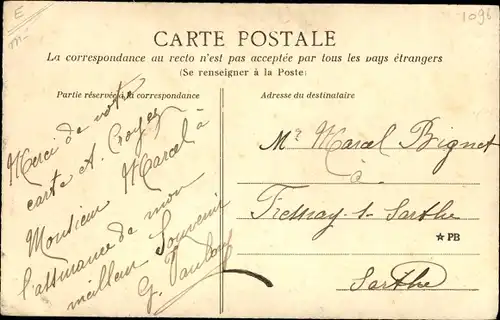 E
m
1096
CARTE POSTALE
La correspondance au recto n'est pas acceptée par tous les pays étrangers
(Se renseigner à la Poste)
Partie réservée à la correspondance
Adresse du destinataire
Merci de votre
carte et Croyez
Monsieur Marcel à
l'assurance de mon
meilleur Souvenir
G.
Mr Marcel Bignet
à
Fresnay-s-Sarthe
★PB
Sarthe